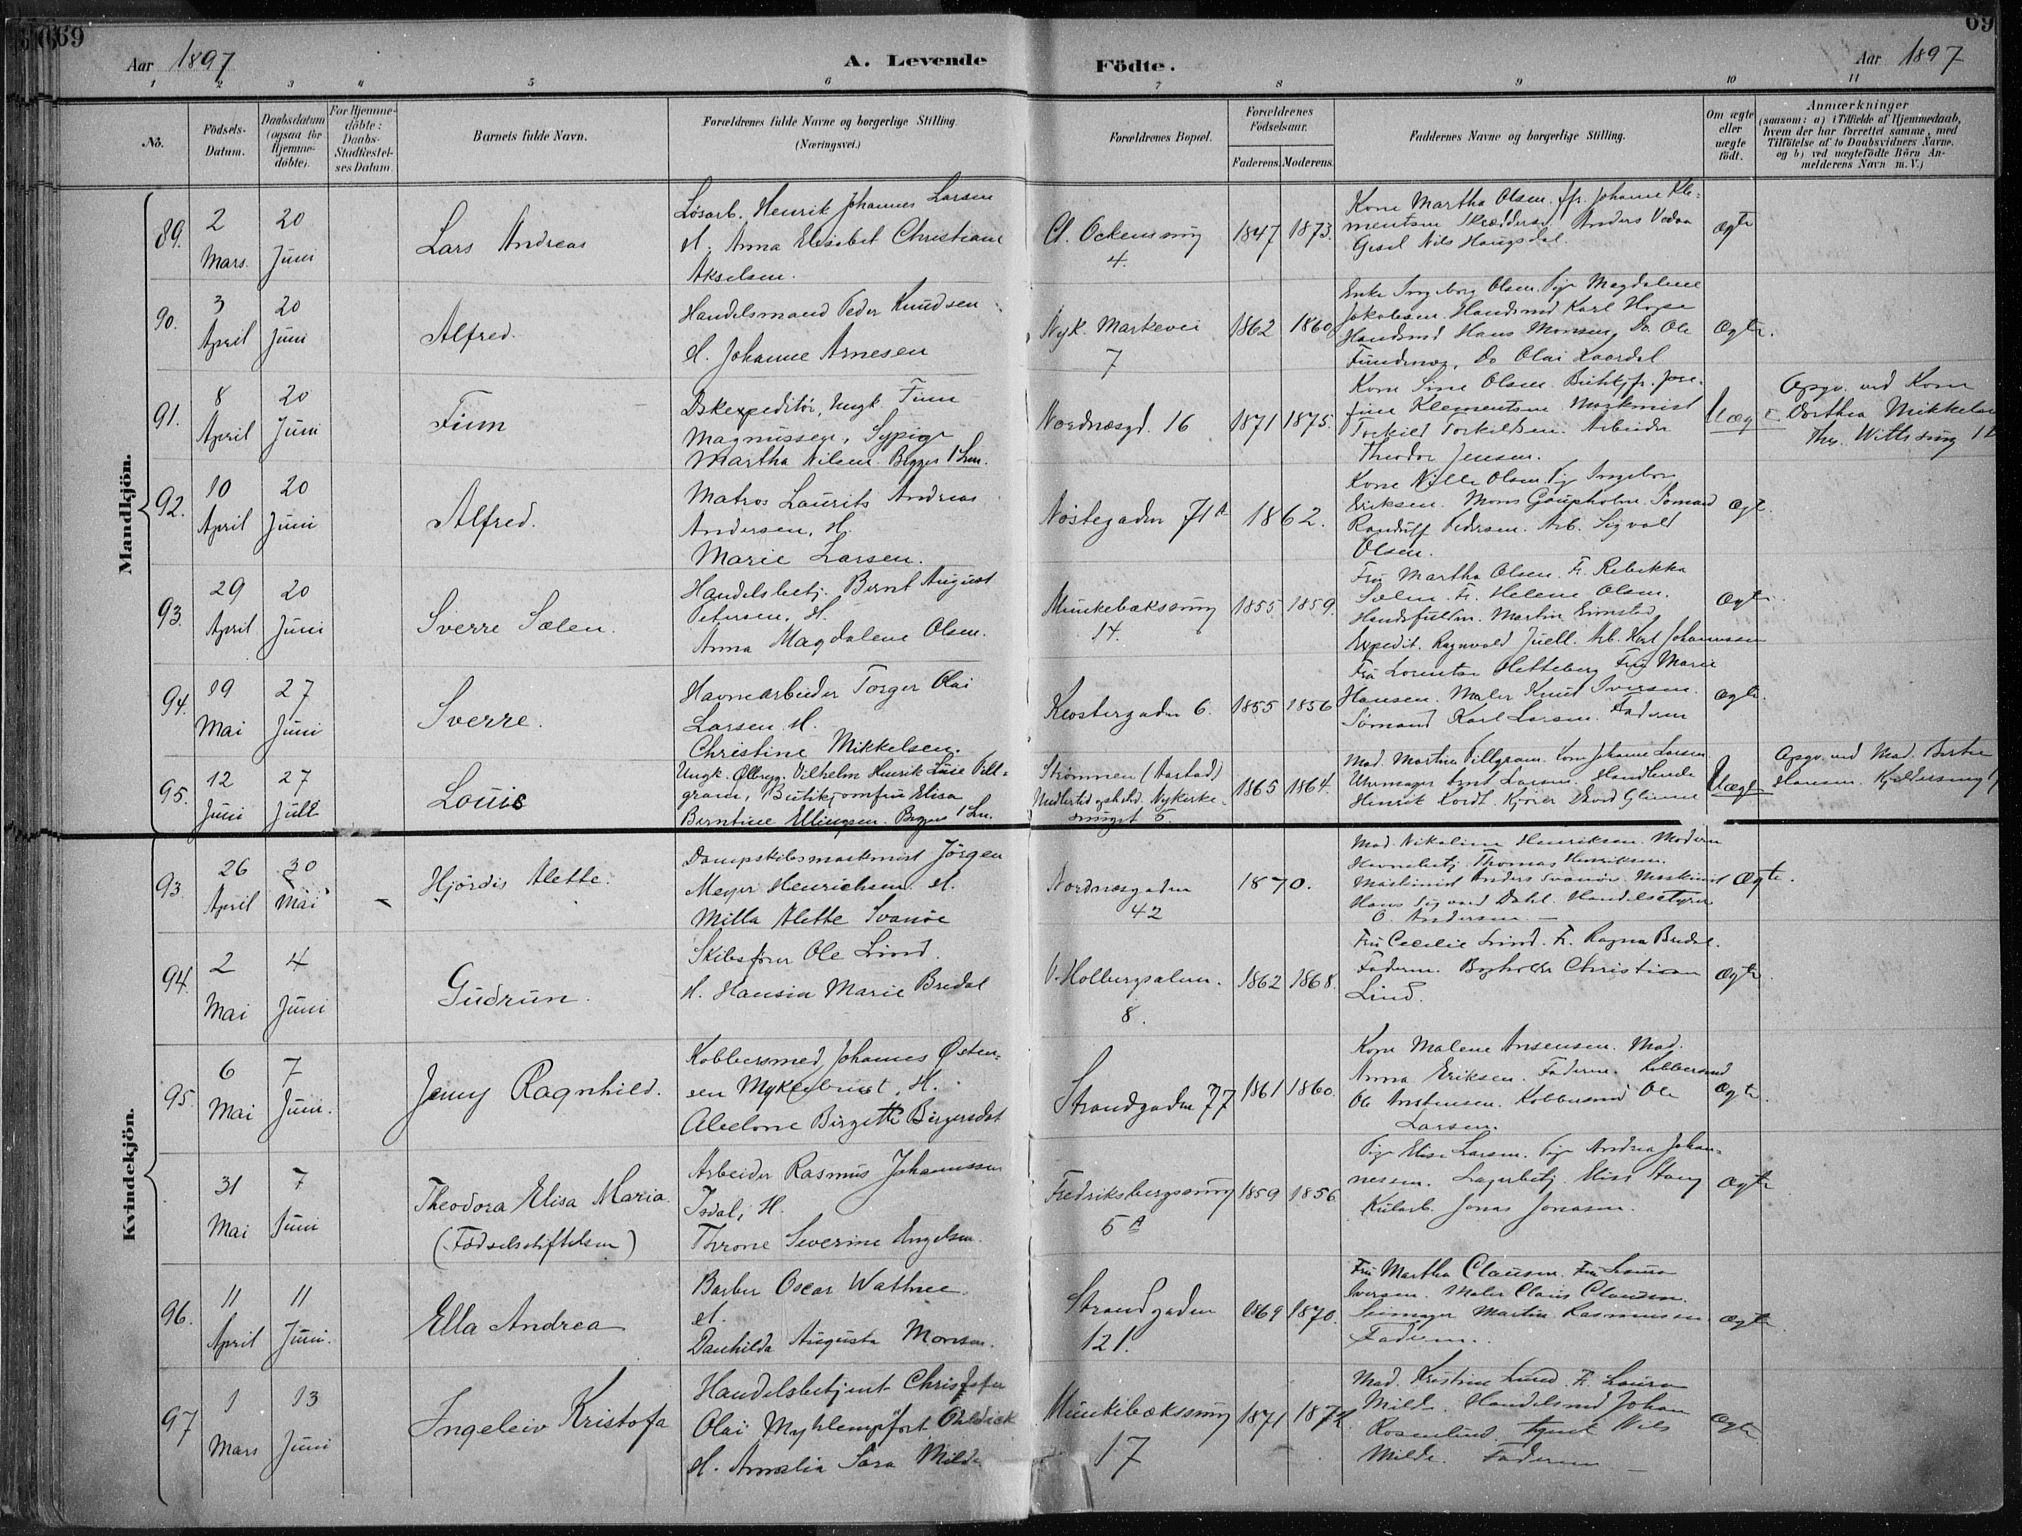 69
69
Aar 1897
A. Levende
Födte.
Aar 1897
1 2 3 4 5 6 7 8 9 10 11
No.
Födsels-
Datum.
Daabsdatum
(ogsaa for
Hjemme-
döbte).
For Hjemme-
döbte:
Daabs-
Stadfæstel-
ses Datum
Barnets fulde Navn.
Forældrenes fulde Navne og borgerlige Stilling.
(Næringsvei.)
Forældrenes Bopæl.
Forældrenes
Födselsaar.
Faderens. Moderens.
Faddernes Navne og borgerlige Stilling.
Om ægte
eller
uægte
födt.
Anmærkninger
(saasom: a) i Tilfælde af Hjemmedaab,
hvem der har forrettet samme, med
Tilföielse af to Daabsvidners Navne,
og b) ved uægtefödte Börn An-
melderens Navn m. V.)
Mandkjön.
89.
2
Mars.
20
Juni
Lars Andreas
Løsarb. Henrik Johannes Larsen
H. Anna Elisabet Christiane
Akselsen.
Cl. Ockensmug
4.
1847 1873.
Kone Martha Olsen. fr. Johanne Kle-
mentsen Skræddersd. Anders Vedaa
Gesel Nils Haugsdal.
Ægte
90.
3
April
20
Juni
Alfred.
Handelsmand Peder Knudsen
H. Johanne Arnesen
Nyk. Markevei
7
1862 1860
Enke Ingeborg Olsen. Pige Magdalene
Jakobsen. Handsmd Karl Hope
Handsmd Hans Monsen, Do Ole
Do Olai
Ægte.
91.
8
April
20
Juni
Finn
Dskexpeditör, Ungk. Finn
Magnussen, Sypige
Martha Nilsen. Begges 1 Lm.
Nordnæsgd. 16
1871 1875.
Kone Sine Olsen. Butikjfr. Jose-
fine Klementsen Maskinist
Torkild Torkildsen. Arbeider
Theodor Jensen.
Uægte
Opgv. ved Kone
Dorthea Mikkelsen
Ths. Wittssmug 12
92.
10
April
20
Juni
Alfred.
Matros Laurits Andreas
Andersen, H.
Marie Larsen.
Nöstegaden 71 A
1862.
Kone Nille Olsen. Pg Ingeborg
Eriksen. Mons Gaupholm. Sömand
Randulf Pedersen. Arb. Sigvald
Olsen.
Ægt.
93.
29
April
20
Juni
Sverre Sælen.
Handelsbetj. Bernt August
Petersen, H.
Anna Magdalene Olsen.
Munkebæksmug
14.
1855 1859.
Fru Martha Olsen. Fr. Rebekka
Sælen. Fr. Helene Olsen.
Handsfuldm. Martin
Expedit. Ragnvald Juell. Arb. Karl Johannessen
Ægte.
94.
19
Mai
27
Juni
Sverre.
Havnearbeider Torger Olai
Larsen. H.
Christine Mikkelsen.
Klostergaden 6.
1855 1856
Fru Lorentse Hetteberg Fru Marie
Hansen. Maler Knud Iversen.
Sømand Karl Larsen. Faderen
Ægte.
95.
12
Juni
27
Juli
Louis
Ungk. Ølbryg. Vilhelm Henrik Louis Pill-
gram, Butikjomfru Elisa
Berntine Ellingsen. Begges 1 Lm.
Strømmen (Aarstad)
Midlertid. ophold. Nykirke-
smuget 5.
1865 1864.
Mad. Martine Pillgram. Jom Johanne Larsen
Uhrmager Larsen. Handlende
Henrik Kordt. Kjører
Uægte
Opgv. ved Mad. Berthe
Hansen.
Kvindekjön.
93.
26
April
30
Mai
Hjördis Alette.
Dampskibsmaskinist Jörgen
Meyer Henrichsen. H.
Milla Alette Svanöe
Nordnæsgaden
42
1870.
Mad. Nikoline Henriksen. Moderen
Havnebetj. Thomas Henriksen.
Maskinist Anders Svanöe. Maskinist
Hans Sigvard Dahl. Handelsstyrer
O. Andersen.
Ægte.
94.
2
Mai
4
Juni
Gudrun.
Skibsfører Ole Lind.
H. Hansin Marie Bredal
V. Holbergsalm.
8.
1862 1868.
Fru Cecilie Lind. Fr. Ragna Bredal.
Faderen. Bogholder Christian
Lind.
Ægte
95.
6
Mai
7
Juni.
Jenny Ragnhild.
Kobbersmed Johannes Østen-
sen Myklebust, H.
Abelone Birgitte Birgersdat
Strandgaden 77
1861 1860.
Kone Malene Mad.
Anna Eriksen. Faderen. Kobbersmd
Ole Kobbersmd Ole
Larsen.
Ægte.
31
Mai
7
Juni
Theodora Elisa Maria.
(Fødselsstiftelsen)
Arbeider Rasmus Johannessen
Isdal, H.
Throne Severine Engelsen.
Fredriksbergsmug
5 A
1859 1856.
Pige Elise Larsen. Pige Andrea Johan-
nessen. Lagerbetj. Nils
Kularb. Jonas Jonasen.
Ægte
96.
11
April
11
Juni.
Ella Andrea
Barber Oscar Wathne.
H.
Danhilda Augusta Monsen.
Strandgaden
121.
1869 1870.
Fru Martha Clausen. Fru Laura
Iversen. Maler Claus Clausen.
Martin Rasmussen
Faderen.
Ægte
97
1
Mars
13
Juni
Ingeleiv Kristofa
Handelsbetjent Christofer
Olai
H. Amalia Sara Milde
Munkebæksmug
17
1871 1872.
Mad. Kristine Lund. Fr. Laura
Milde. Handelsmd Johan
Rosenlund. Agent Nils
Milde. Faderen
Ægte